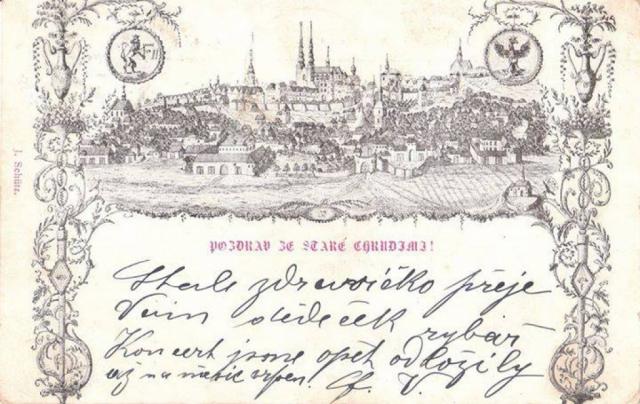 J. Schütz.
POZDRAV ZE STARÉ CHRUDIMI!
Stale zdravíčko přeje
Vám dědeček rybář
Koncert jsme opět odložily
až na měsíc srpen.